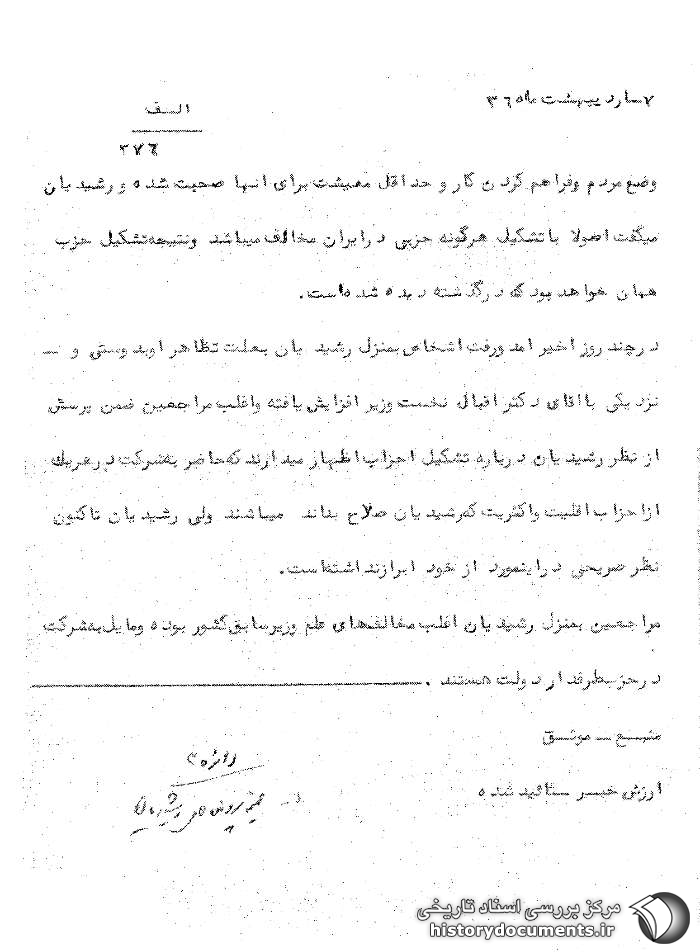 الف
۳۷۶
۷ ـ اردیبهشت ماه ۳۶
وضع مردم وفراهم کردن کار و حداقل معیشت برای انها صحبت شده و رشیدیان
میگفت اصولا باتشکیل هرگونه حزبی درایران مخالف میباشد ونتیجه تشکیل حزب
همان خواهد بود که درگذشته دیده شده است.
درچند روز اخیر امد ورفت اشخاص بمنزل رشیدیان بعلت تظاهر اوبدوستی و ـ
نزدیکی بااقای دکتر اقبال نخست وزیر افزایش یافته واغلب مراجعین ضمن پرسش
از نظر رشیدیان درباره تشکیل احزاب اظهار میدارند که حاضر بشرکت درهریك
ازاحزاب اقلیت واکثریت که رشیدیان صلاح بداند میباشند ولی رشیدیان تاکنون
نظر صریحی دراینمورد از خود ابرازنداشته است.
مراجعین بمنزل رشیدیان اغلب مخالف‌های علم وزیرسابق کشور بوده ومایل به شرکت
درحزب طرفدار دولت هستند .
منبع ـ موثق
ارزش خبر ـ تائید شده
مرکز بررسی اسناد تاریخی
historydocuments.ir